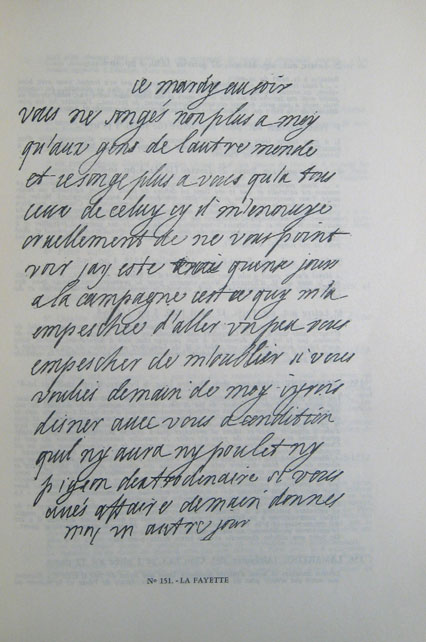 ce mardy au soir
vous ne songés non plus a moy
qu'aux gens de l'autre monde
et je songe plus a vous qu'a tous
ceux de celuy cy il m'ennuye
cruellement de ne vous point
voir jay este quinze jours
a la campagne cest ce quy m'a
empeschée d'aller un peu vous
empescher de m'oublier si vous
voulies demain de moy jyrois
disner avec vous a condition
quil ny aura ny poulet ny
pigeon dextrordinaire si vous
aves affaire demain donnes
moy un autre jour
Nº 151. - LA FAYETTE